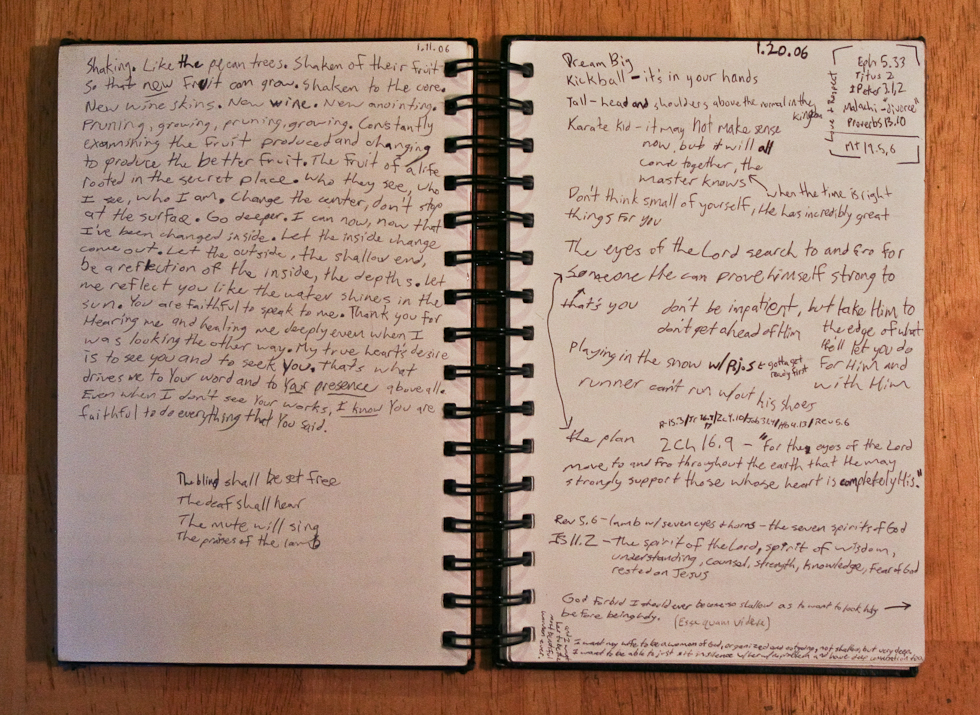 1.11.06
Shaking. Like the pecan trees. Shaken of their fruit
so that new fruit can grow. Shaken to the core.
New wine skins. New wine. New anointing.
Pruning, growing, pruning, growing. Constantly
examining the fruit produced and changing
to produce the better fruit. The fruit of a life
rooted in the secret place. Who they see, who
I see, who I am. Change the center, don't stop
at the surface. Go deeper. I can now, now that
I've been changed inside. Let the inside change
come out. Let the outside, the shallow end,
be a reflection of the inside, the depths. Let
me reflect you like the water shines in the
sun. You are faithful to speak to me. Thank you for
Hearing me and healing me deeply even when I
was looking the other way. My true heart's desire
is to see you and to seek you. That's what
drives me to Your word and to Your presence above all.
Even when I don't see Your works, I know You are
faithful to do everything that You said.
The blind shall be set free
The deaf shall hear
The mute will sing
The praises of the lamb
1.20.06
Dream Big
Kickball - it's in your hands
Tall - head and shoulders above the normal in the
kingdom
Karate kid - it may not make sense
now, but it will all
come together, the
master knows
when the time is right
Love & Respect
Eph 5.33
Titus 2
1 Peter 3.1,2
Malachi - "divorce"
Proverbs 13.10
MT 19.5,6
Don't think small of yourself, He has incredibly great
things for you
The eyes of the Lord search to and fro for
someone He can prove himself strong to
that's you
don't be impatient, but take Him to
don't get ahead of Him
the edge of what
He'll let you do
for Him and
with Him
Playing in the snow w/ Pj.s
gotta get
ready first
runner can't run w/out his shoes
the plan
2 Ch 16.9 - "for the eyes of the Lord
move to and fro throughout the earth that He may
strongly support those whose heart is completely His."
Rev 5.6 - lamb w/ seven eyes & horns - the seven spirits of God
IS 11.2 - the spirit of the Lord, spirit of wisdom,
understanding, counsel, strength, knowledge, fear of God
rested on Jesus
God forbid I should ever become so shallow as to want to look holy
before being holy. (Esse quam videre)
I want my wife to be a woman of God, organized and outgoing, not shallow, but very deep.
I want to be able to just sit in silence